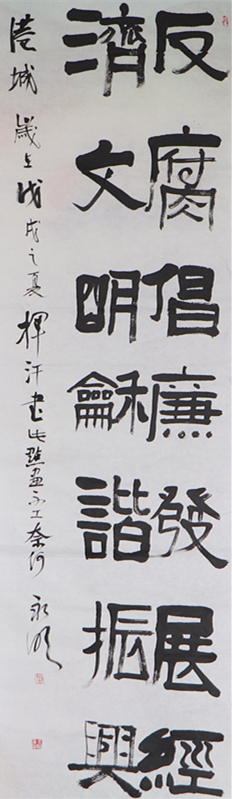 反腐倡廉發展經
濟文明龢諧振興
港城 歲在戊戌之夏揮汗書此點畫不工奈何 永